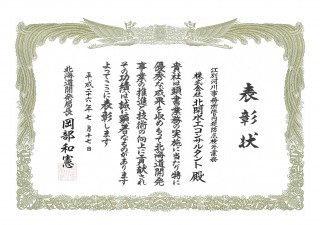 表彰状
江別河川事務所管内堤防点検外業務
株式会社 北開水工コンサルタント 殿
貴社は頭書業務の実施に当たり特に
優秀な成果を収めもって北海道開発
事業の推進と技術の向上に貢献され
その功績は誠に顕著なものがあります
よってここに表彰します
平成二十六年七月十七日
北海道開発局長 岡部和憲